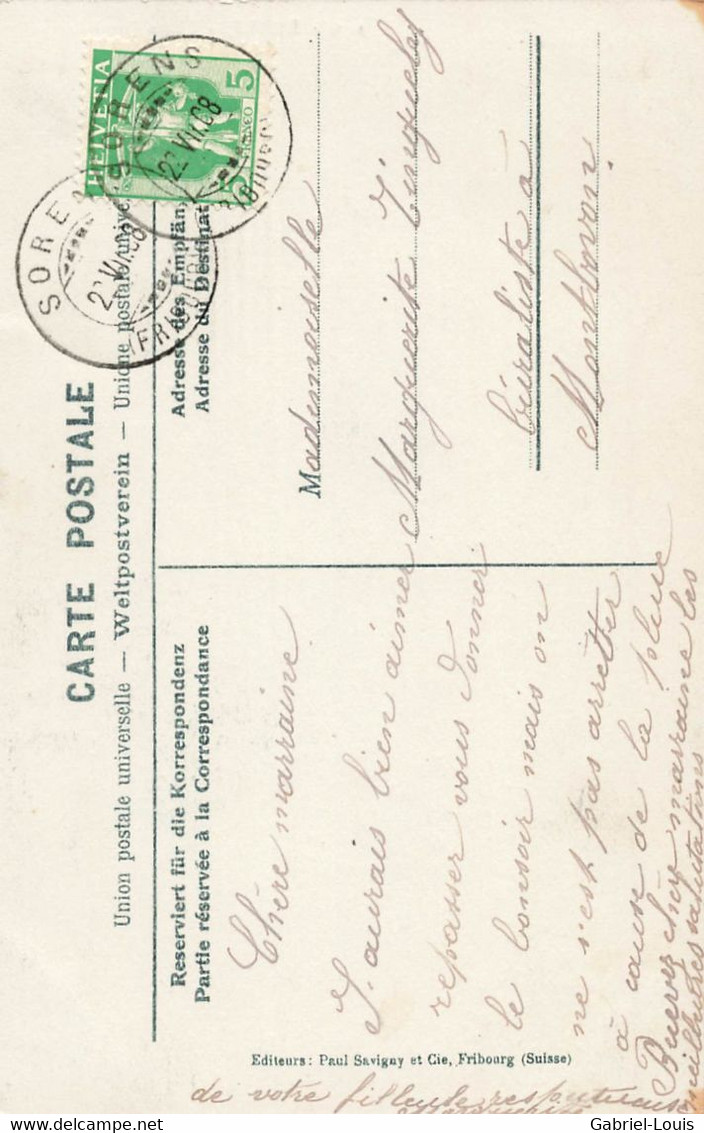 CARTE POSTALE
Union postale universelle — Weltpostverein — Unione postale universale
Reserviert für die Korrespondenz
Partie réservée à la Correspondance
Adresse des Empfän
Adresse du Destinat
HELVETIA
5 5
FRANCO
SORENS
VII.08
(FRIBOURG)
SORENS
VII.08
(FRIBOURG)
Mademoiselle
Marguerite Tinguely
à
Montbovon
Chère marraine
J'aurais bien aimer
repasser vous donner
le bonsoir mais on
ne s'est pas arretter
à cause de la pluie
chère marraine les
meilleures salutations
de votre filleule respectueuse
Editeurs: Paul Savigny et Cie, Fribourg (Suisse)
Gabriel-Louis